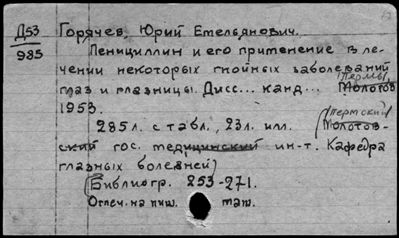 Д53
985
Горячев, Юрий Емельянович.
Пенициллин и его применение в ле-
чении некоторых гнойных заболеваний
глаз и глазницы. Дисс... канд... Пермь Молотов
1953.
285л. с табл., 23л. илл. (Пермский
Молотов-
ский гос. медицинский ин-т. Кафедра
глазных болезней)
(Библиогр. 253-271.
Отпеч. на пиш. маш.